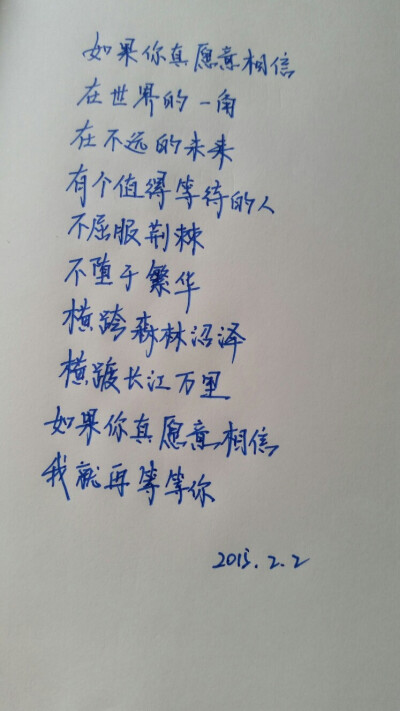 如果你真愿意相信
在世界的一角
在不远的未来
有个值得等待的人
不屈服荆棘
不堕于繁华
横跨森林沼泽
横踱长江万里
如果你真愿意相信
我就再等等你
2015.2.2